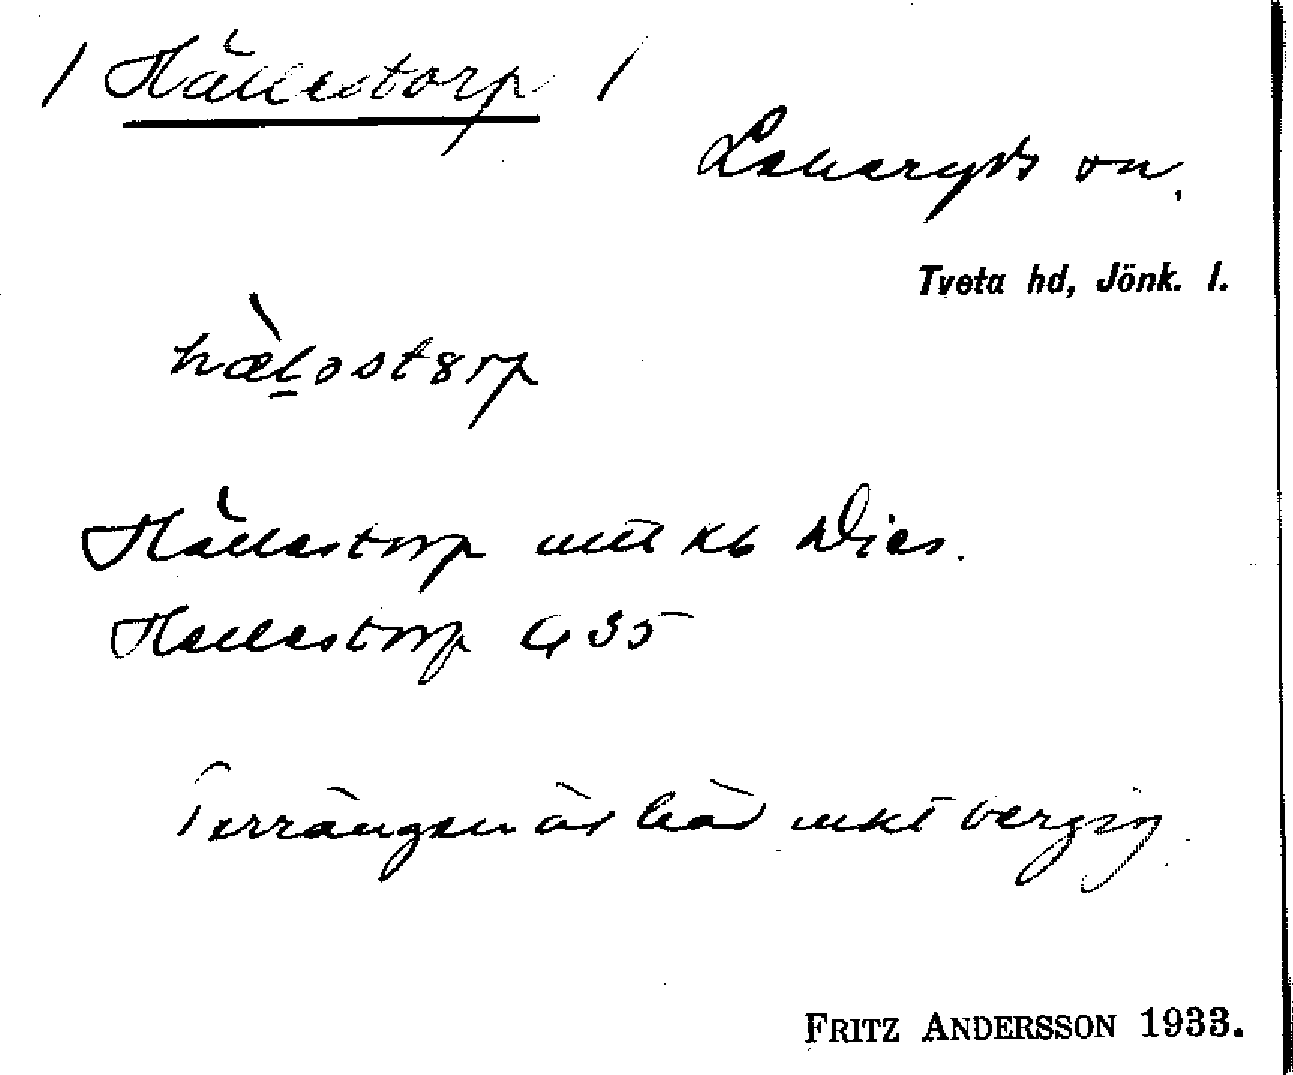 / Hällestorp /
Lekeryds sn.
Tveta hd, Jönk. l.
hælostorp
Hällestorp
Hallestorp G 35
Terrängen är här mkt bergig.
FRITZ ANDERSSON 1933.